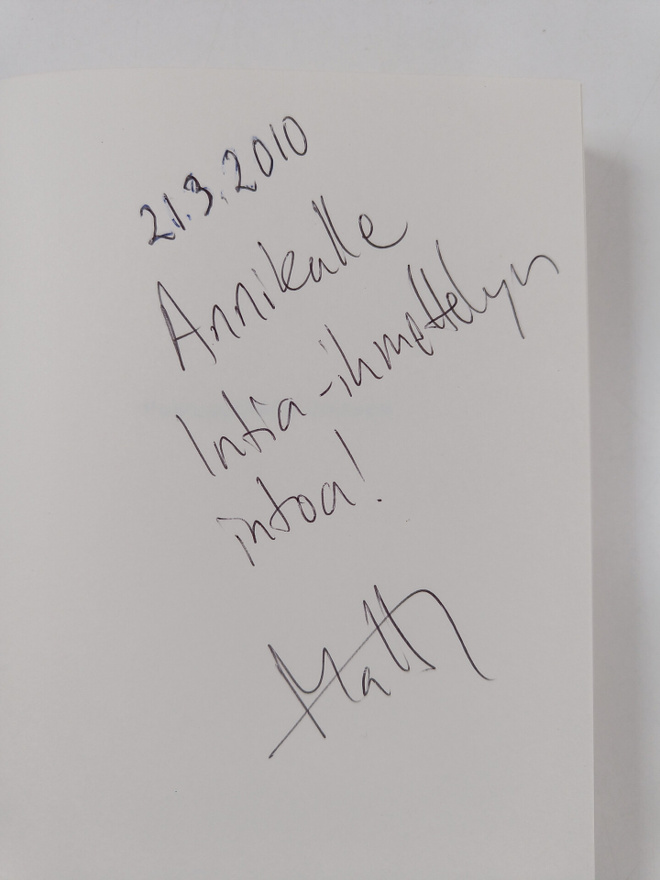 21.3.2010
Annikalle
Intia-ihmettelyn
intoa!
Matti